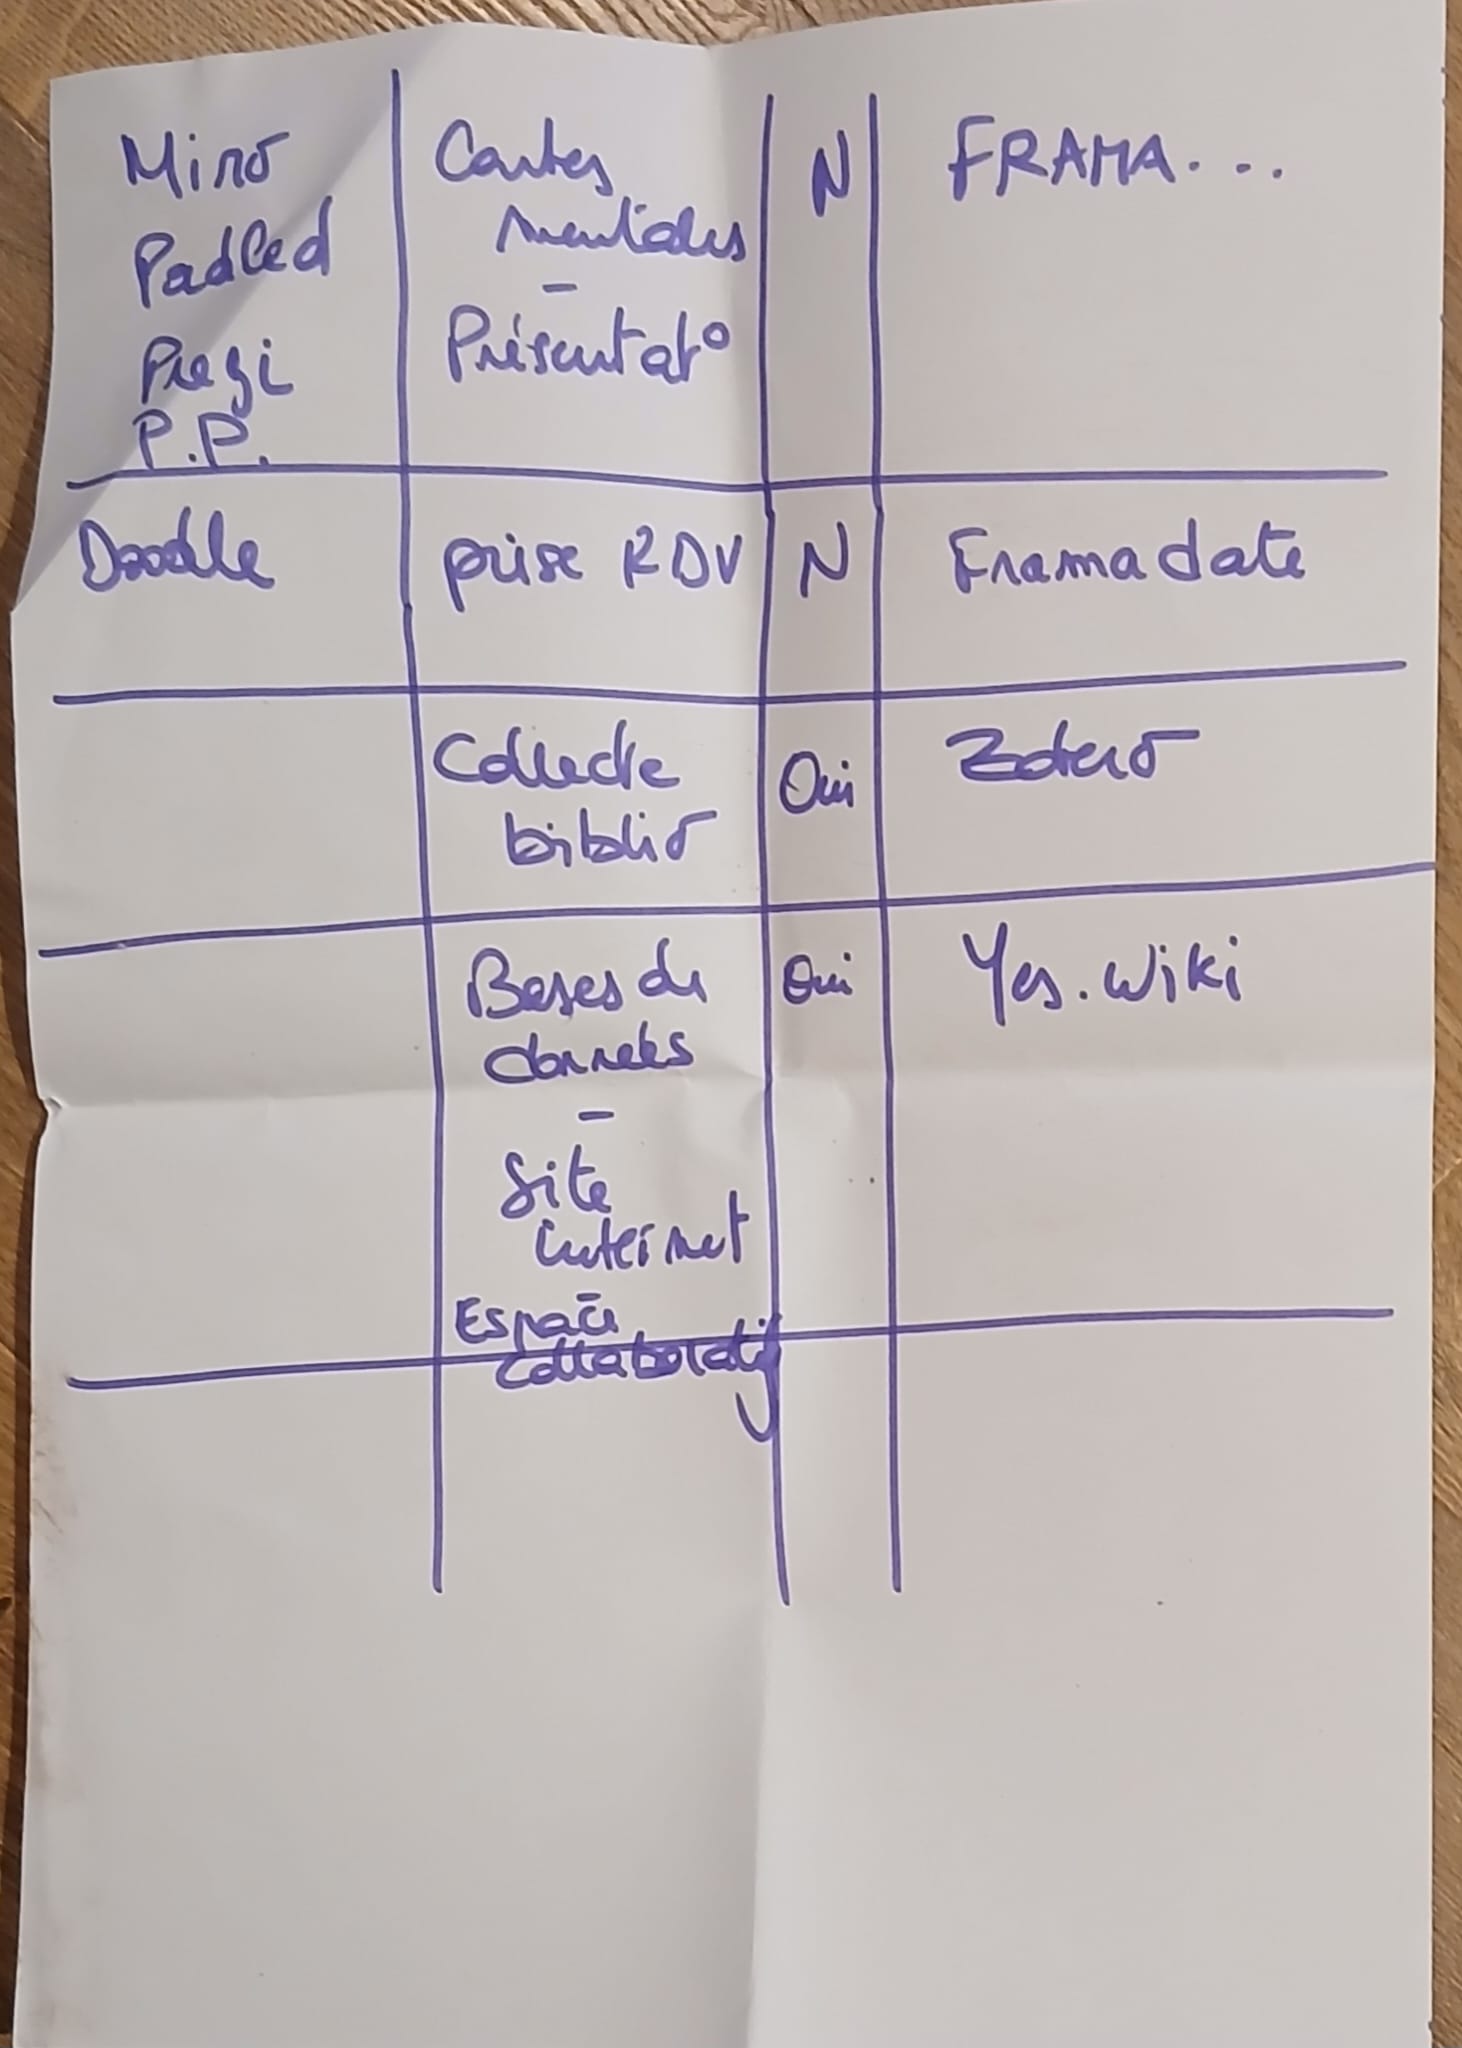 Miro
Padled
Prezi
P.P.
Cartes
mentales
-
Présentat°
N
FRAMA...
Doodle
prise RDV
N
Framadate
Collecte
biblio
Oui
Zotero
Bases de
données
-
Site
internet
-
Espace
collaboratif
Oui
Yes.Wiki